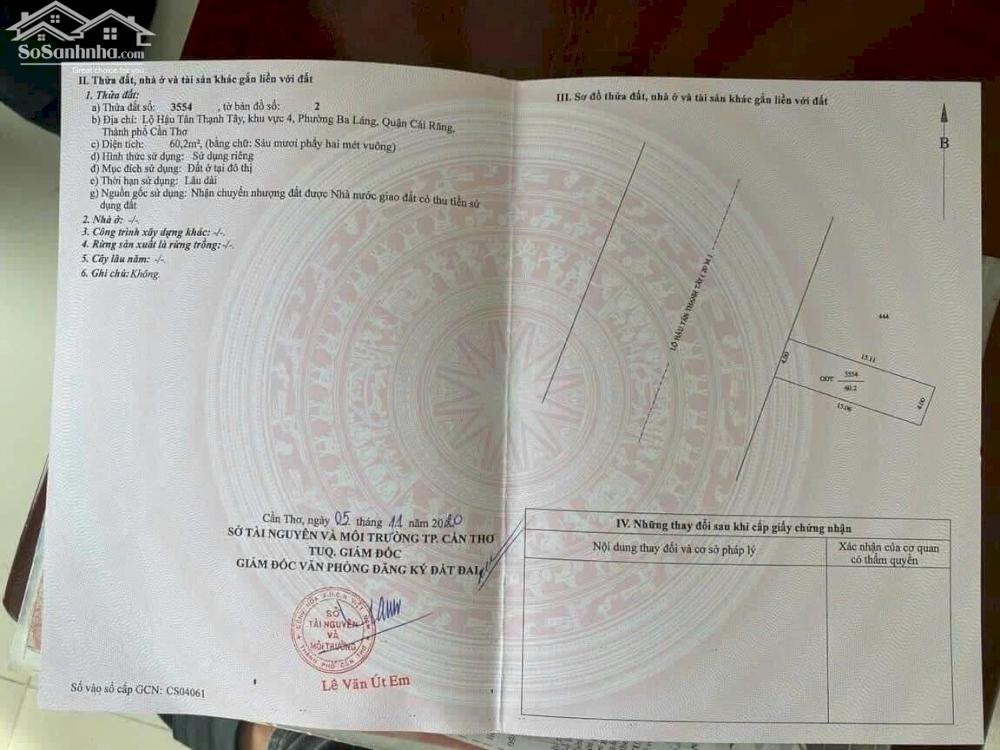 SoSanhnha.com
Great choice for you
II. Thửa đất, nhà ở và tài sản khác gắn liền với đất
1. Thửa đất:
a) Thửa đất số: 3554 , tờ bản đồ số: 2
b) Địa chỉ: Lộ Hậu Tân Thạnh Tây, khu vực 4, Phường Ba Láng, Quận Cái Răng,
Thành phố Cần Thơ
c) Diện tích: 60,2m², (bằng chữ: Sáu mươi phẩy hai mét vuông)
d) Hình thức sử dụng: Sử dụng riêng
đ) Mục đích sử dụng: Đất ở tại đô thị
e) Thời hạn sử dụng: Lâu dài
g) Nguồn gốc sử dụng: Nhận chuyển nhượng đất được Nhà nước giao đất có thu tiền sử
dụng đất
2. Nhà ở: -/-.
3. Công trình xây dựng khác: -/-.
4. Rừng sản xuất là rừng trồng: -/-.
5. Cây lâu năm: -/-.
6. Ghi chú: Không.
Cần Thơ, ngày 05 tháng 11 năm 2020
SỞ TÀI NGUYÊN VÀ MÔI TRƯỜNG TP. CẦN THƠ
TUQ. GIÁM ĐỐC
GIÁM ĐỐC VĂN PHÒNG ĐĂNG KÝ ĐẤT ĐAI
CỘNG HÒA X.H.C.N VIỆT NAM
SỞ
TÀI NGUYÊN
VÀ
MÔI TRƯỜNG
THÀNH PHỐ CẦN THƠ
Lê Văn Út Em
Số vào sổ cấp GCN: CS04061
III. Sơ đồ thửa đất, nhà ở và tài sản khác gắn liền với đất
B
LỘ HẬU TÂN THẠNH TÂY ( 20 M )
444
4.00
15.11
ODT 3554
60.2
15.06
4.00
IV. Những thay đổi sau khi cấp giấy chứng nhận
Nội dung thay đổi và cơ sở pháp lý
Xác nhận của cơ quan
có thẩm quyền